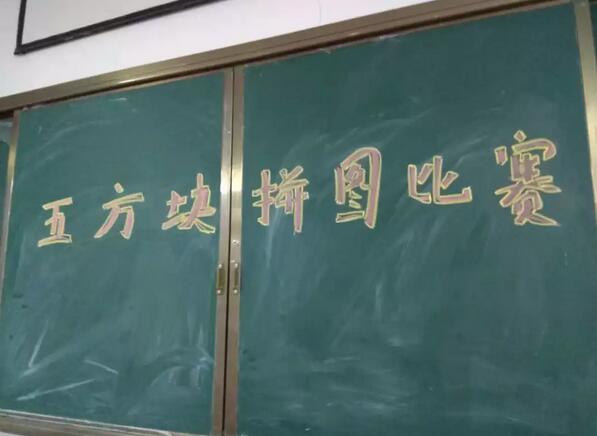 五方块拼图比赛